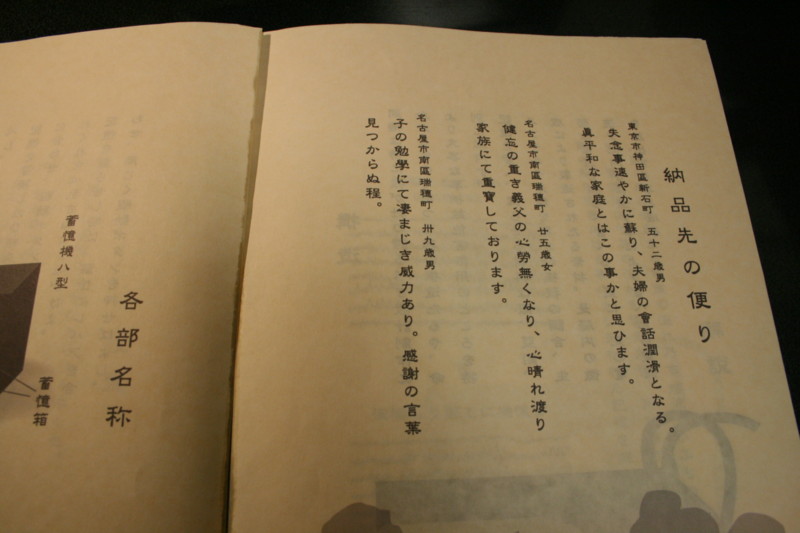 納品先の便り
東京市神田區新石町 五十二歳男
失念事速やかに蘇り、夫婦の會話潤滑となる。
眞平和な家庭とはこの事かと思ひます。
名古屋市南區瑞穂町 廿五歳女
健忘の重き義父の心勞無くなり、心晴れ渡り
家族にて重寶しております。
名古屋市南區瑞穂町 卅九歳男
子の勉學にて凄まじき威力あり。感謝の言葉
見つからぬ程。
各部名称
蓄憶機ハ型
蓄憶箱